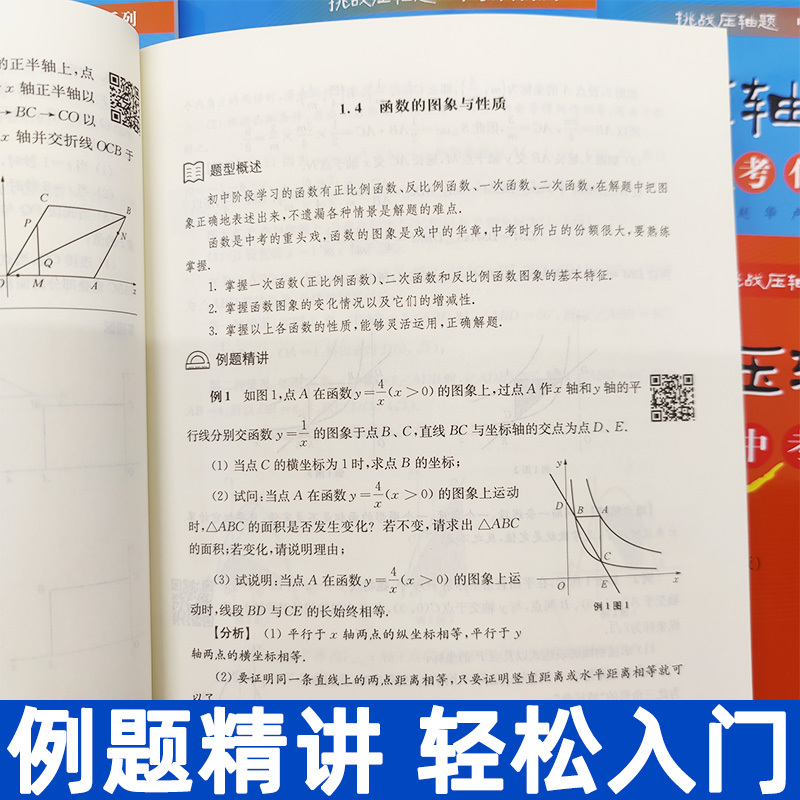 挑战压轴题
挑战压轴题
轴
考
的正半轴上,点
x 轴正半轴以
→BC→CO 以
x 轴并交折线 OCB 于
C
B
P
N
Q
O
M
A
x
1.4 函数的图象与性质
题型概述
初中阶段学习的函数有正比例函数、反比例函数、一次函数、二次函数,在解题中把图
象正确地表述出来,不遗漏各种情景是解题的难点.
函数是中考的重头戏,函数的图象是戏中的华章,中考时所占的份额很大,要熟练
掌握.
1. 掌握一次函数(正比例函数)、二次函数和反比例函数图象的基本特征.
2. 掌握函数图象的变化情况以及它们的增减性.
3. 掌握以上各函数的性质,能够灵活运用,正确解题.
例题精讲
例1 如图1,点A在函数y=4/x(x>0)的图象上,过点A作x轴和y轴的平
行线分别交函数y=1/x的图象于点B、C,直线BC与坐标轴的交点为点D、E.
(1) 当点C的横坐标为1时,求点B的坐标;
(2) 试问:当点A在函数y=4/x(x>0)的图象上运动
时,△ABC的面积是否发生变化?若不变,请求出△ABC
的面积;若变化,请说明理由;
(3) 试说明:当点A在函数y=4/x(x>0)的图象上运
动时,线段BD与CE的长始终相等.
y
D
B
A
C
O
E
x
例1图1
【分析】 (1) 平行于x轴两点的纵坐标相等,平行于y
轴两点的横坐标相等.
(2) 要证明同一条直线上的两点距离相等,只要证明竖直距离或水平距离相等就可
以了
挑战压轴题
压
中考
例题精讲 轻松入门